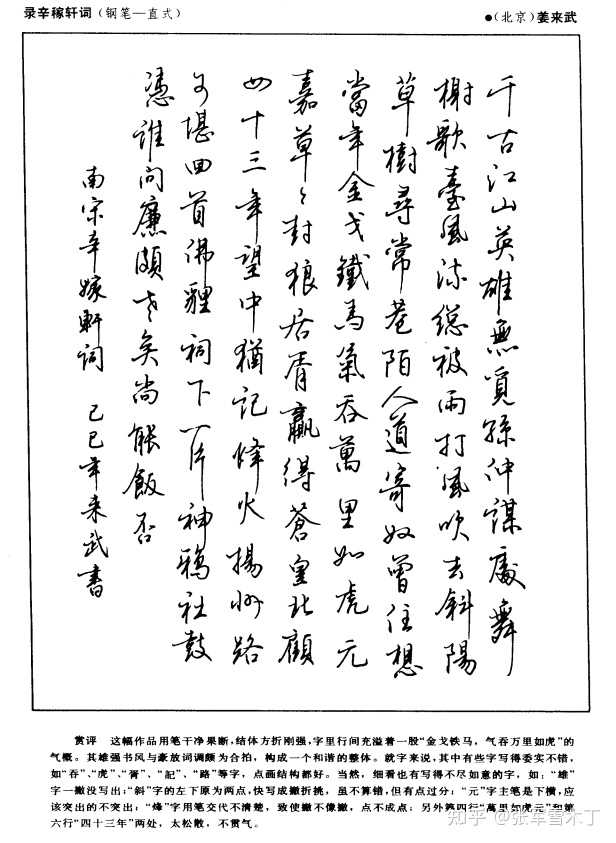 录辛稼轩词（钢笔—直式）
●（北京）姜来武
千古江山英雄無覓孫仲謀處舞
榭歌臺風流總被雨打風吹去斜陽
草樹尋常巷陌人道寄奴曾住想
當年金戈鐵馬氣吞萬里如虎元
嘉草々封狼居胥贏得蒼皇北顧
四十三年望中猶記烽火揚州路
可堪回首佛貍祠下一片神鴉社鼓
憑誰問廉頗老矣尚能飯否
南宋辛稼軒詞 己巳年来武書
赏评　这幅作品用笔干净果断，结体方折刚强，字里行间充溢着一股“金戈铁马，气吞万里如虎”的
气概。其雄强书风与豪放词调颇为合拍，构成一个和谐的整体。就字来说，其中有些字写得委实不错，
如“吞”、“虎”、“胥”、“記”、“路”等字，点画结构都好。当然，细看也有写得不尽如意的字，如：“雄”
字一撇没写出；“斜”字的左下原为两点，快写成撇折挑，虽不算错，但有点过分；“元”字主笔是下横，应
该突出的不突出；“烽”字用笔交代不清楚，致使撇不像撇，点不成点；另外第四行“萬里如虎元”和第
六行“四十三年”两处，太松散，不贯气。
知乎 @张军雪木丁